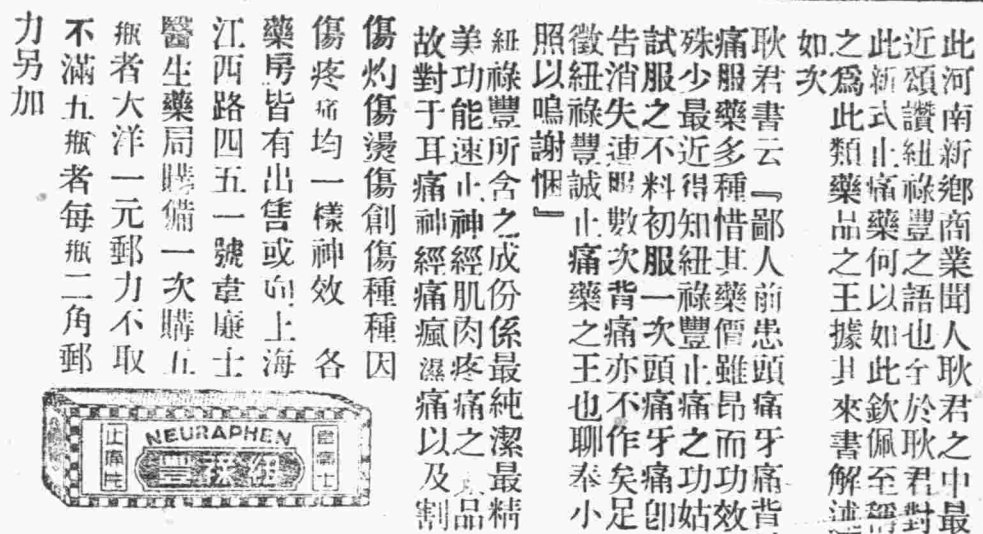 此河南新鄉商業聞人耿君之中最
近頌讚紐祿豐之語也至於耿君對
此新式止痛藥何以如此欽佩至稱
之爲此類藥品之王據其來書解述
如次
耿君書云『鄙人前患頭痛牙痛背
痛服藥多種惜其藥價雖昂而功效
殊少最近得知紐祿豐止痛之功姑
試服之不料初服一次頭痛牙痛卽
告消失連服數次背痛亦不作矣足
徵紐祿豐誠止痛藥之王也聊奉小
照以嗚謝悃』
紐祿豐所含之成份係最純潔最精
美功能速止神經肌肉疼痛之品
故對于耳痛神經痛瘋濕痛以及割
傷灼傷燙傷創傷種種因
傷疼痛均一樣神效 各
藥房皆有出售或向上海
江西路四五一號韋廉士
醫生藥局購備一次購五
瓶者大洋一元郵力不取
不滿五瓶者每瓶二角郵
力另加
NEURAPHEN
豐祿紐
韋廉士
止痛片